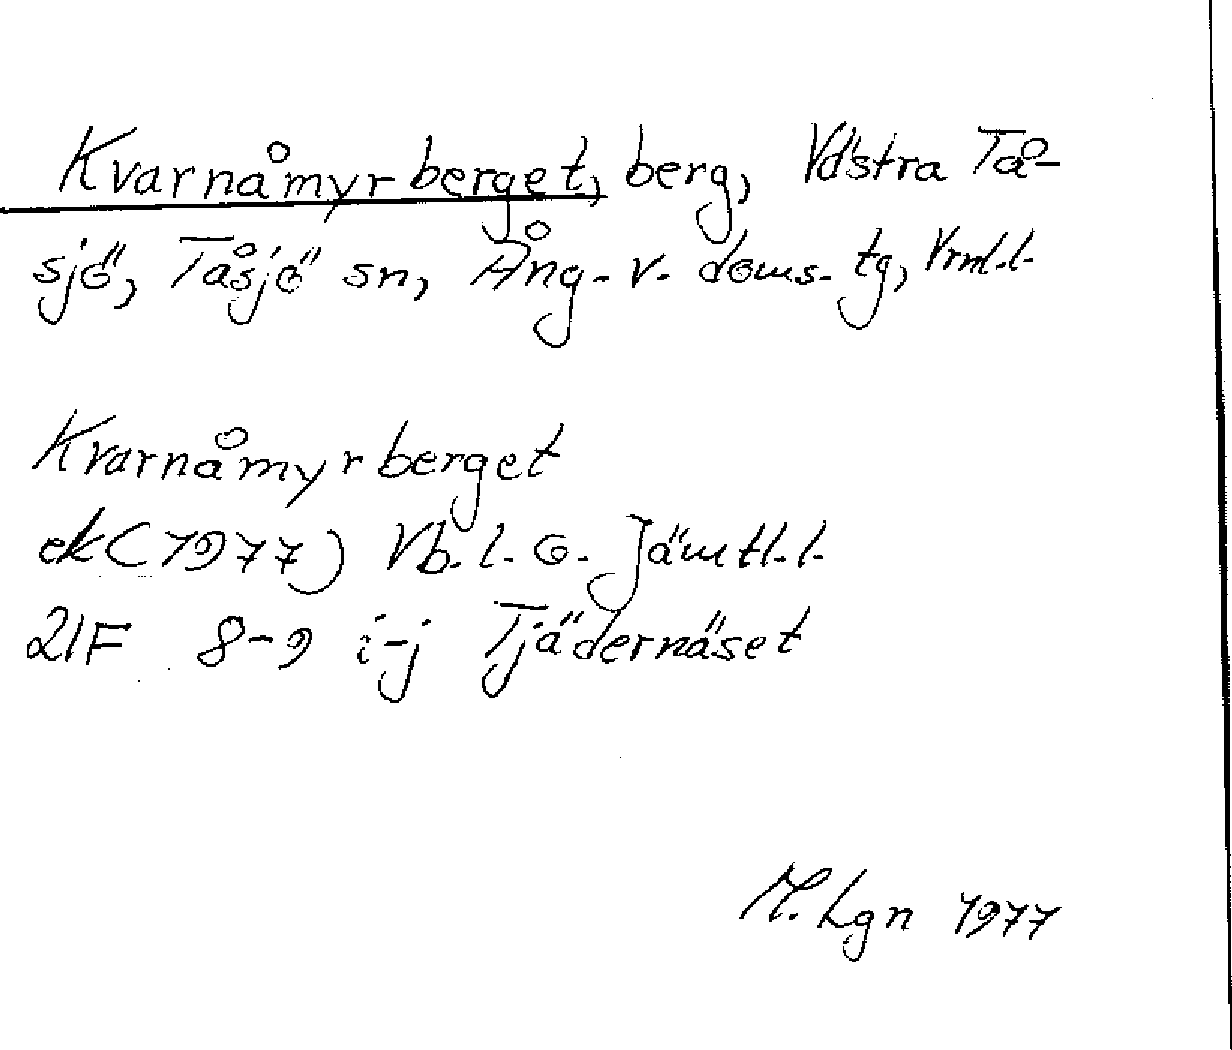 Kvarnåmyrberget, berg, Västra Tå-
sjö, Tåsjö sn, Ång. v. doms. tg, Vrml.l.
Kvarnåmyrberget
ek (1977) Vb. l. o. Jämtl.l.
21F 8-9 i-j Tjädernäset
M. Lgn 1977